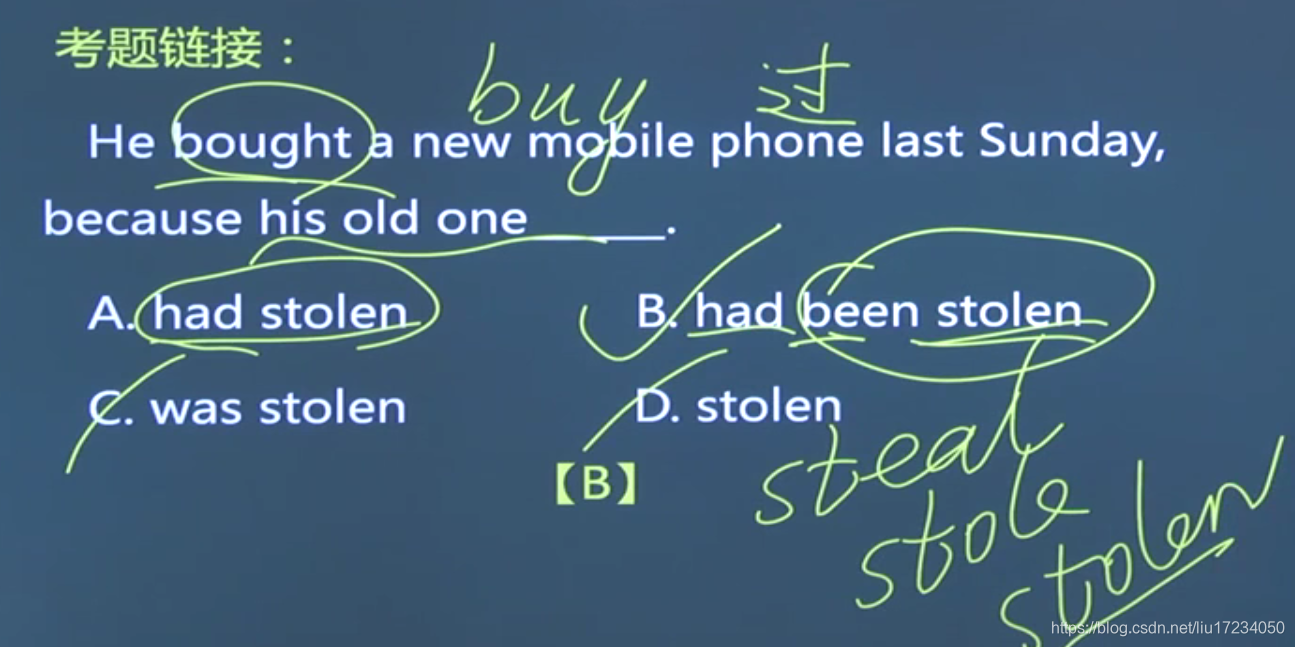 考题链接：
buy 过
He bought a new mobile phone last Sunday,
because his old one ______.
A. had stolen B. had been stolen
C. was stolen D. stolen
【B】
steal
stole
stolen
https://blog.csdn.net/liu17234050